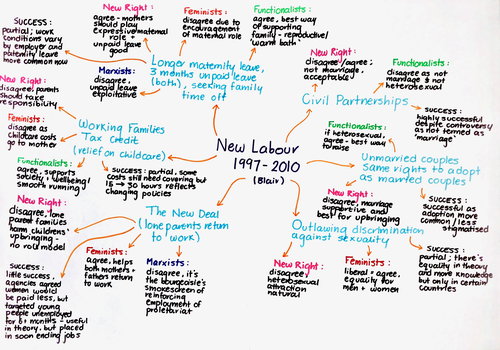 New Labour
1997-2010
(Blair)
Longer maternity leave,
3 months unpaid leave
(both), seeking family
time off
SUCCESS:
partial; work
conditions vary
by employer and
paternity leave
more common now
New Right:
agree - mothers
should play
expressive/maternal
role +
unpaid leave
good
Feminists:
disagree due to
encouragement
of maternal role
Functionalists:
agree, best way
of supporting
family - reproductive/
'warm bath'
Marxists:
disagree,
unpaid leave
exploitative
Civil Partnerships
New Right:
disagree/agree;
not marriage,
acceptable?
Functionalists:
disagree as not
marriage & not
heterosexual
SUCCESS:
highly successful
despite controversy
as not termed as
'marriage'
Unmarried couples
Same rights to adopt
as married couples
Functionalists:
if heterosexual,
agree - best way
to raise
New Right:
disagree, marriage
supportive and
best for upbringing
SUCCESS:
successful as
adoption more
common/less
stigmatised
Outlawing discrimination
against sexuality
New Right:
disagree/
heterosexual
attraction
natural
Feminists:
liberal = agree,
equality for
men + women
SUCCESS:
partial; there's
equality in theory
and more knowledge
but only in certain
countries
The New Deal
(lone parents return
to work)
New Right:
disagree, lone
parent families
harm childrens'
upbringing -
no role model
SUCCESS:
little success,
agencies agreed
women would
be paid less, but
targeted young
people unemployed
for 6+ months - useful
in theory, but placed
in soon ending jobs
Feminists:
agree, helps
both mothers +
fathers return
to work
Marxists:
disagree, it's
the bourgeoisie's
smokescreen of
reinforcing
employment of
proletariat
Working Families
Tax Credit
(relief on childcare)
New Right:
disagree, parents
should take
responsibility
Feminists:
disagree as
childcare costs
go to mother
Functionalists:
agree, supports
society + wellbeing/
smooth running
SUCCESS: partial, some
costs still need covering but
15 → 30 hours reflects
changing policies